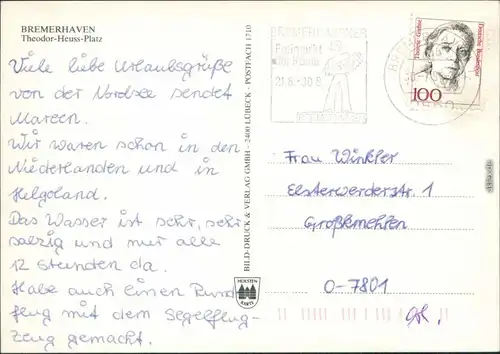 BREMERHAVEN
Theodor-Heuss-Platz
Viele liebe Urlaubsgrüße
von der Nordsee sendet
Mareen.
Wir waren schon in den
Niederlanden und in
Helgoland.
Das Wasser ist sehr, sehr
salzig und nur alle
12 Stunden da.
Habe auch einen Rund
flug mit dem Segelflug-
zeug gemacht.
BILD-DRUCK & VERLAG GMBH - 2400 LÜBECK - POSTFACH 1710
HOLSTEN
KARTE
BREMERHAVENER
Freimarkt
21.8.-30.8.
BREMERHAVEN
Therese Giehse
Deutsche Bundespost
100
Frau Winkler
Elsterwerderstr. 1
Großkmehlen
O-7801